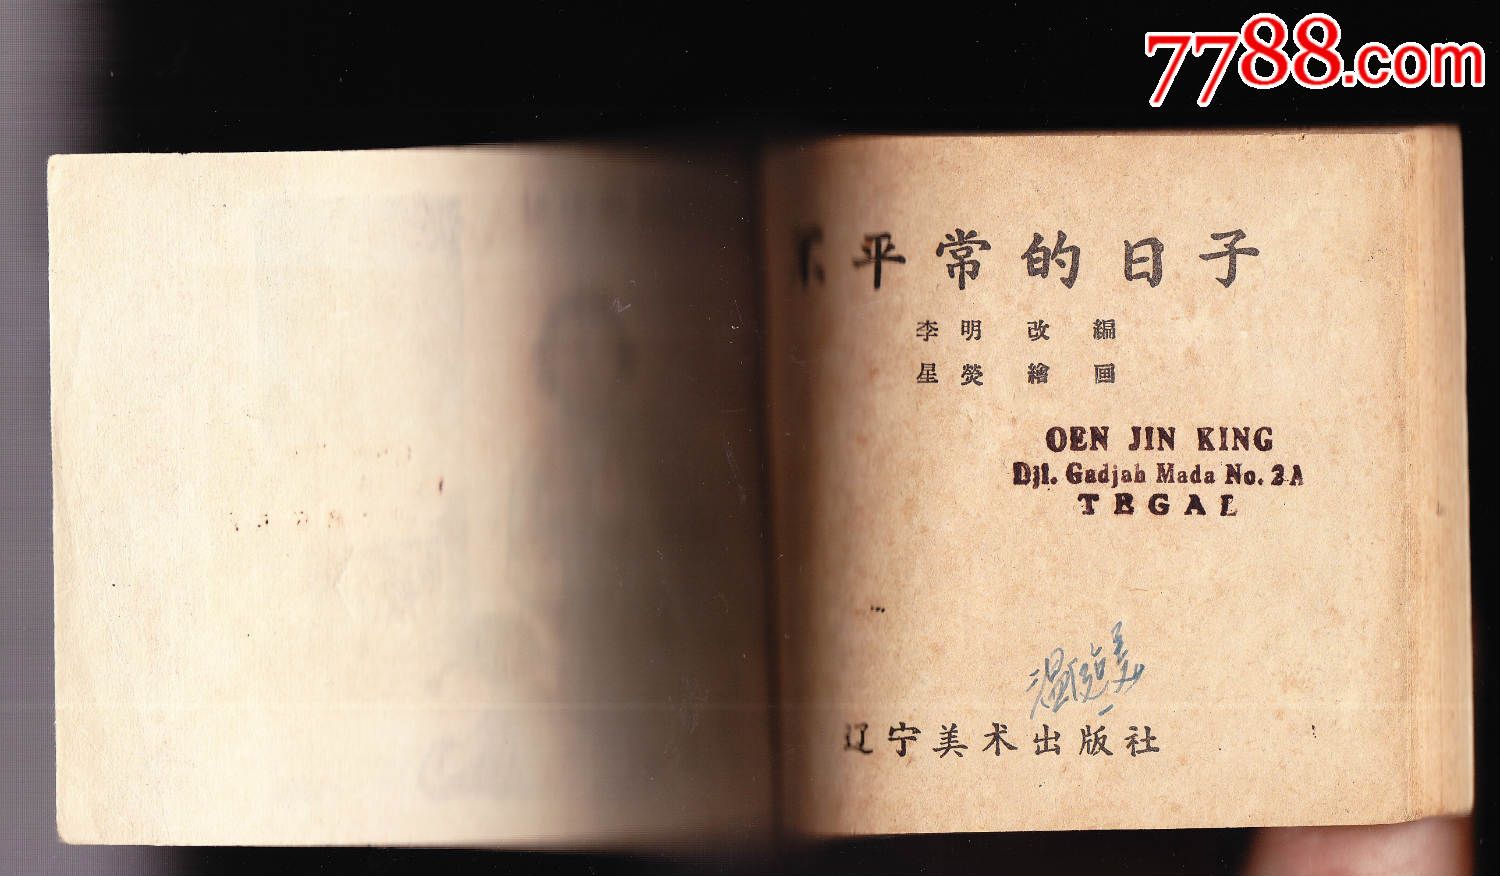 7788.com
不平常的日子
李明 改 編
星熒 繪 画
OEN JIN KING
Djl. Gadjah Mada No. 2A
TEGAL
辽宁美术出版社